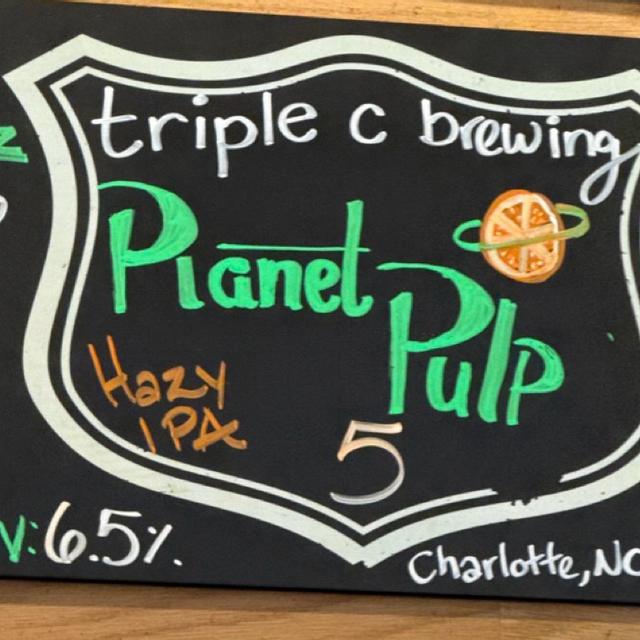 triple c brewing
Planet
Pulp
Hazy
IPA
5
V: 6.5%.
Charlotte, NC